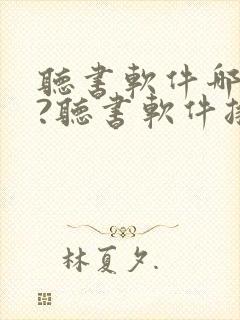 聽書軟件哪
?聽書軟件
林夏夕.